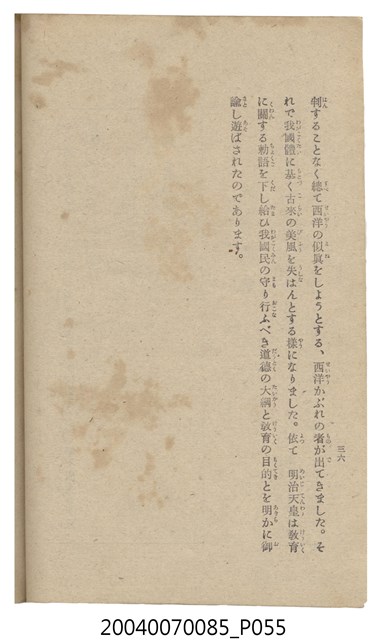 三六
判することなく總て西洋の似眞をしようとする、西洋かぶれの者が出てきました。そ
れで我國體に基く古來の美風を失はんとする樣になりました。依て　明治天皇は敎育
に關する勅語を下し給ひ我國民の守り行ふべき道德の大綱と敎育の目的とを明かに御
諭し遊ばされたのであります。
20040070085_P055